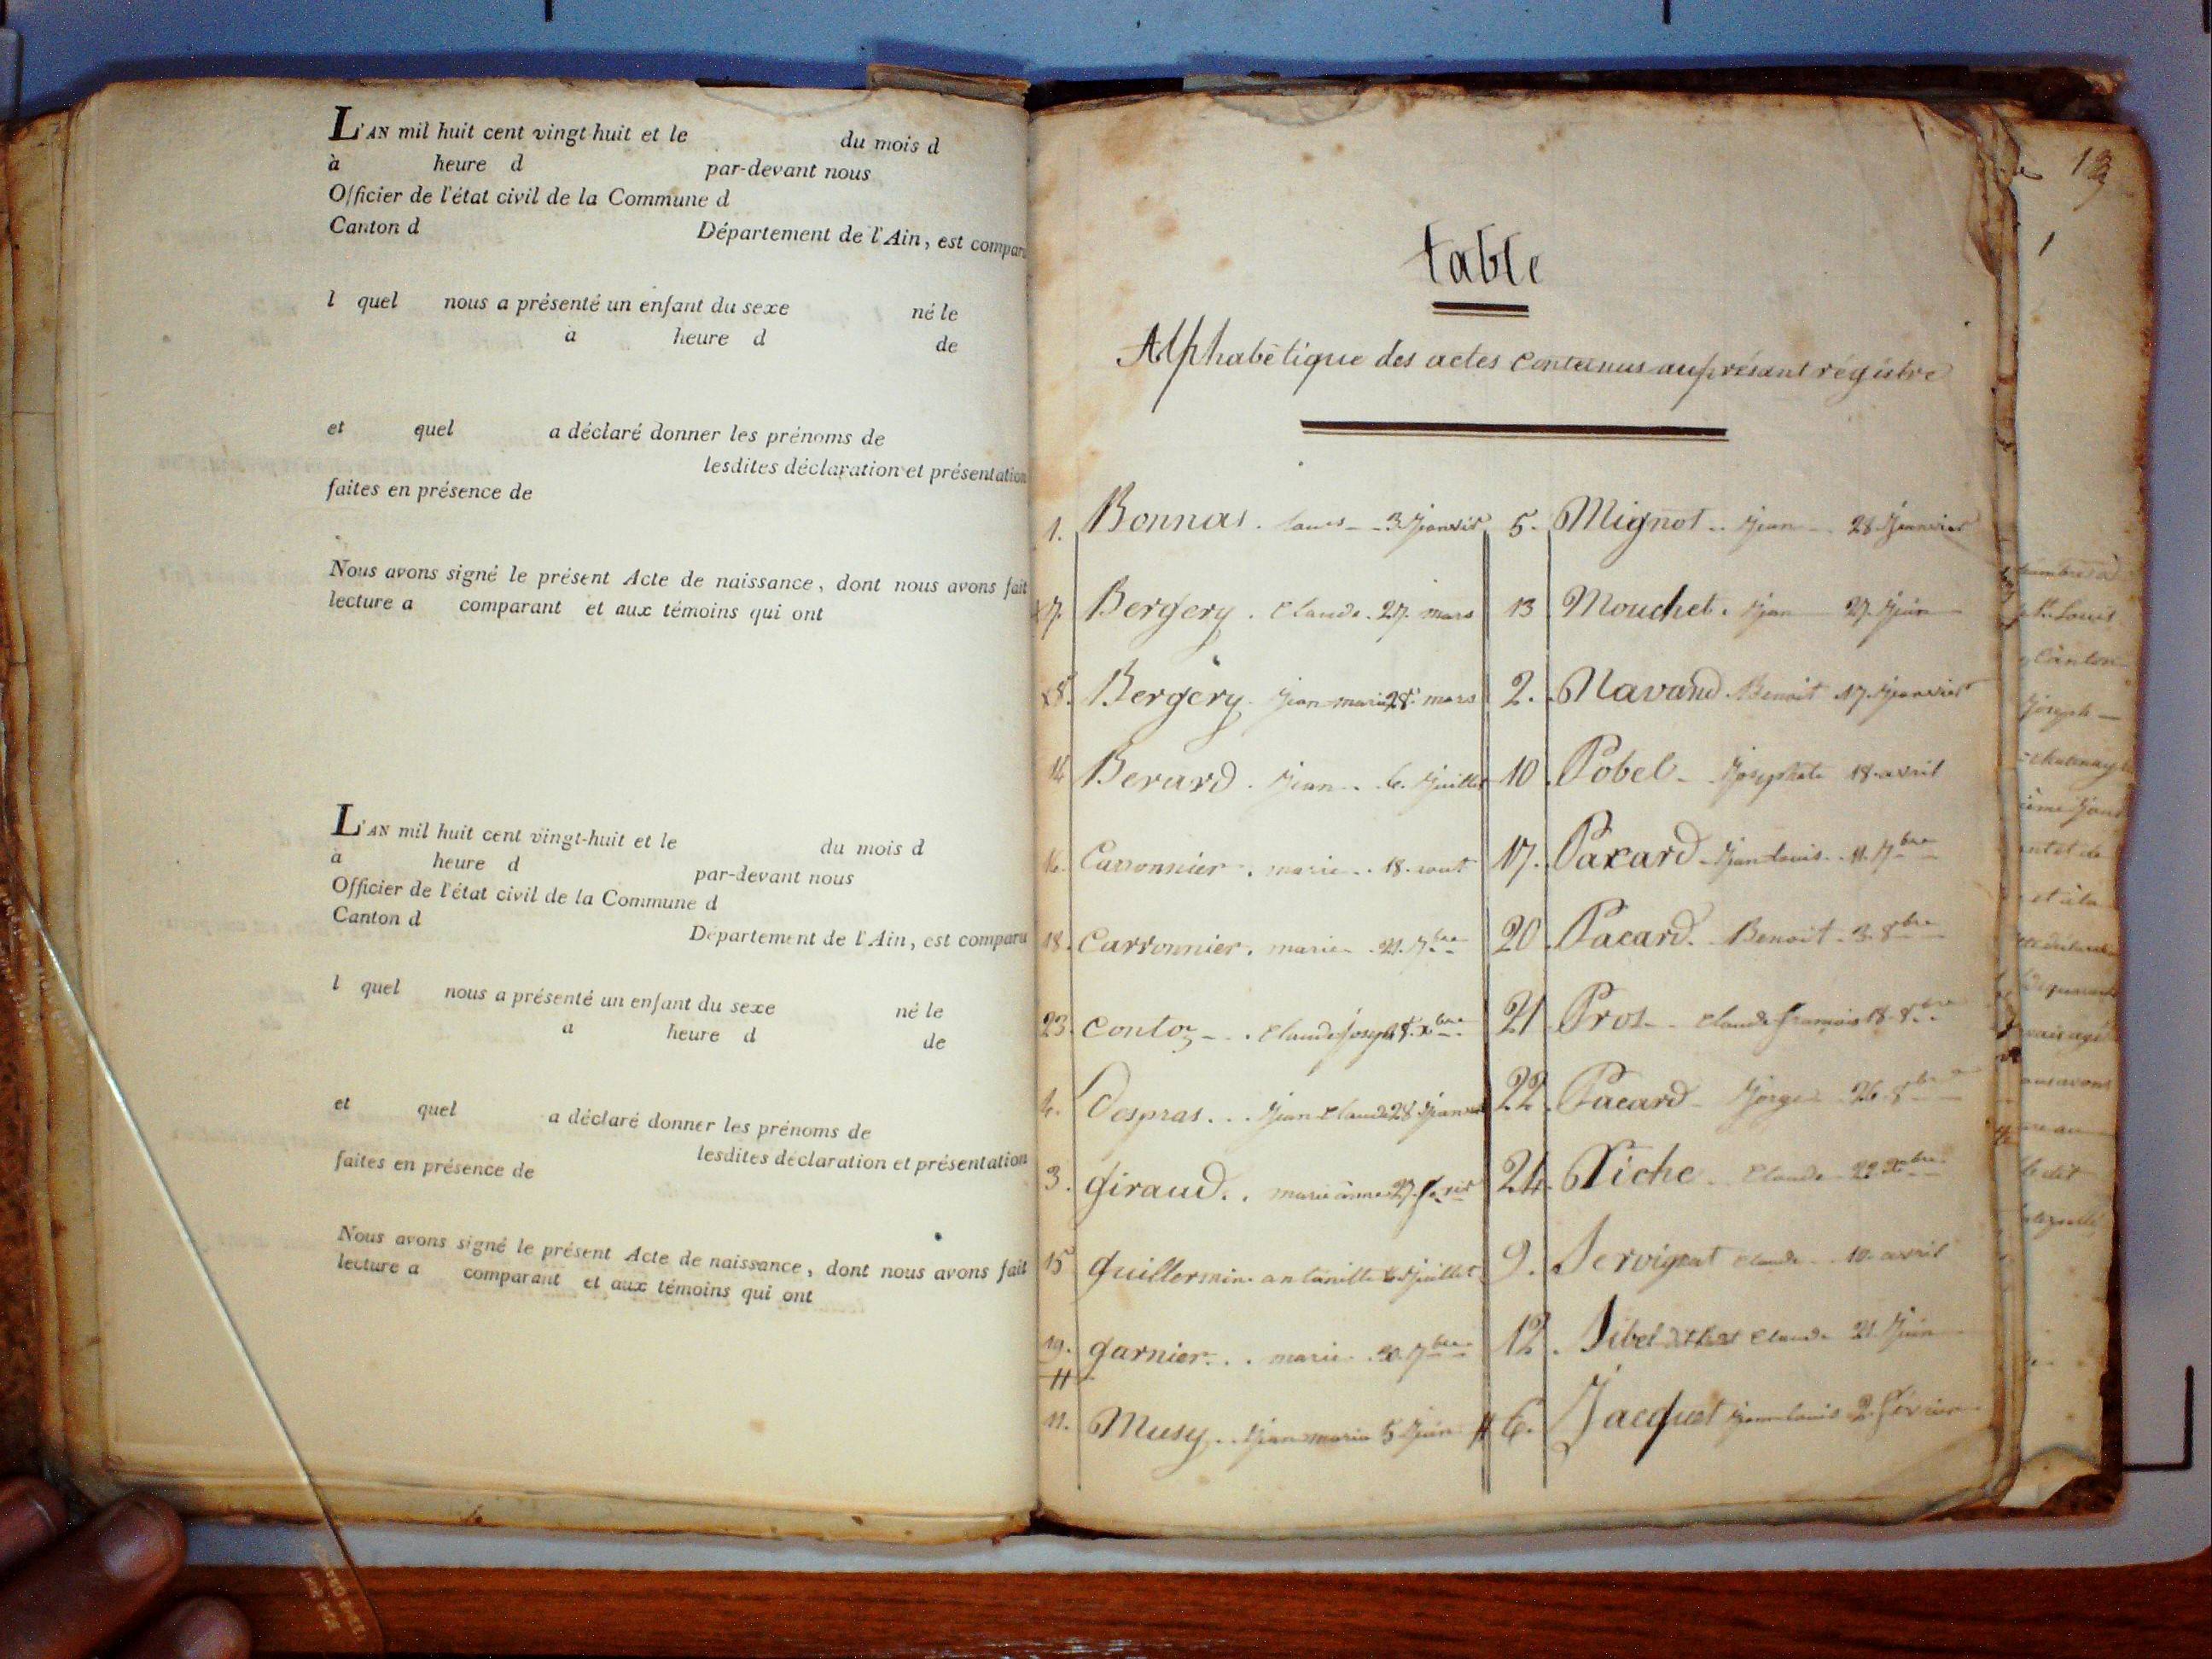 L'AN mil huit cent vingt-huit et le du mois d
à heure d par-devant nous
Officier de l'état civil de la Commune d
Canton d Département de l'Ain, est comparu
l quel nous a présenté un enfant du sexe né le
à heure d de
et quel a déclaré donner les prénoms de
lesdites déclaration et présentation
faites en présence de
Nous avons signé le présent Acte de naissance, dont nous avons fait
lecture a comparant et aux témoins qui ont
L'AN mil huit cent vingt-huit et le du mois d
à heure d par-devant nous
Officier de l'état civil de la Commune d
Canton d Département de l'Ain, est comparu
l quel nous a présenté un enfant du sexe né le
à heure d de
et quel a déclaré donner les prénoms de
lesdites déclaration et présentation
faites en présence de
Nous avons signé le présent Acte de naissance, dont nous avons fait
lecture a comparant et aux témoins qui ont
table
Alphabétique des actes contenus au présant régistre
1. Bonnas. 3 Janvier
7. Bergery. Claude. 27. mars
8. Bergery. Jean-marie 28. mars
14 Berard. Jean. 6. Juillet
16. Carronnier. marie. 18. aout
18. Carronnier. marie. 21. 7bre
23. Contoz. Claude Joseph 8. xbre
4. Despras... Jean Claude 28 Janvier
3. Giraud.. marie anne 27.
15 Guillermin. antoinette 6 Juillet
19. Garnier... marie. 30. 7bre
11. Musy.. Jean marie 5 Juin
5. Mignot.. Jean 28 Janvier
13 Mouchet. Jean 27. Juin
2. Navand Benoit 17. Janvier
10. Pobel Josephate 18. avril
17. Paxard Jean Louis. 11. 7bre
20. Pacard. Benoit. 3. 8bre
21. Pros Claude françois 18. 8bre
22. Pacard Jorge 26. 8bre
24. Riche Claude 22 xbre
9. Servignat Claude 10. avril
12. Sibel Claude 21. Juin
6. Jacquet Jean Louis 2 février
1
St. Louis
Canton
Joseph
et à la